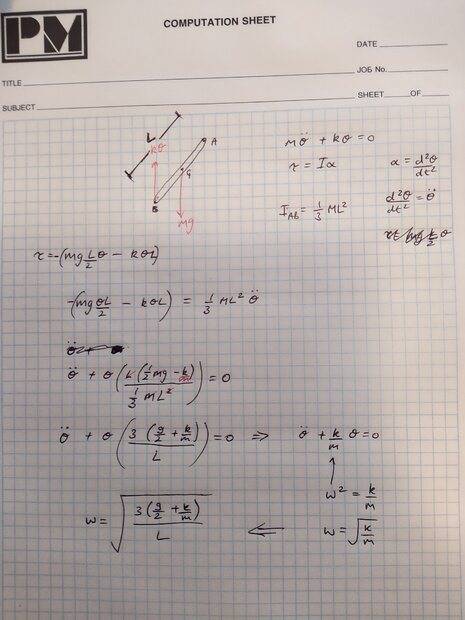 PM
COMPUTATION SHEET
DATE
JOB No.
TITLE
SHEET OF
SUBJECT
L
kθ
A
G
B
mg
mθ̈ + kθ = 0
τ = Iα
α = d²θ/dt²
I_AB = 1/3 ML²
d²θ/dt² = θ̈
τ = -(mg L/2 θ - kθL)
-(mg θL/2 - kθL) = 1/3 ML² θ̈
θ̈ + θ (L(1/2 mg - k/m) / (1/3 mL²)) = 0
θ̈ + θ (3(g/2 + k/m) / L) = 0 => θ̈ + k/m θ = 0
ω² = k/m
ω = √(3(g/2 + k/m) / L) <= ω = √(k/m)